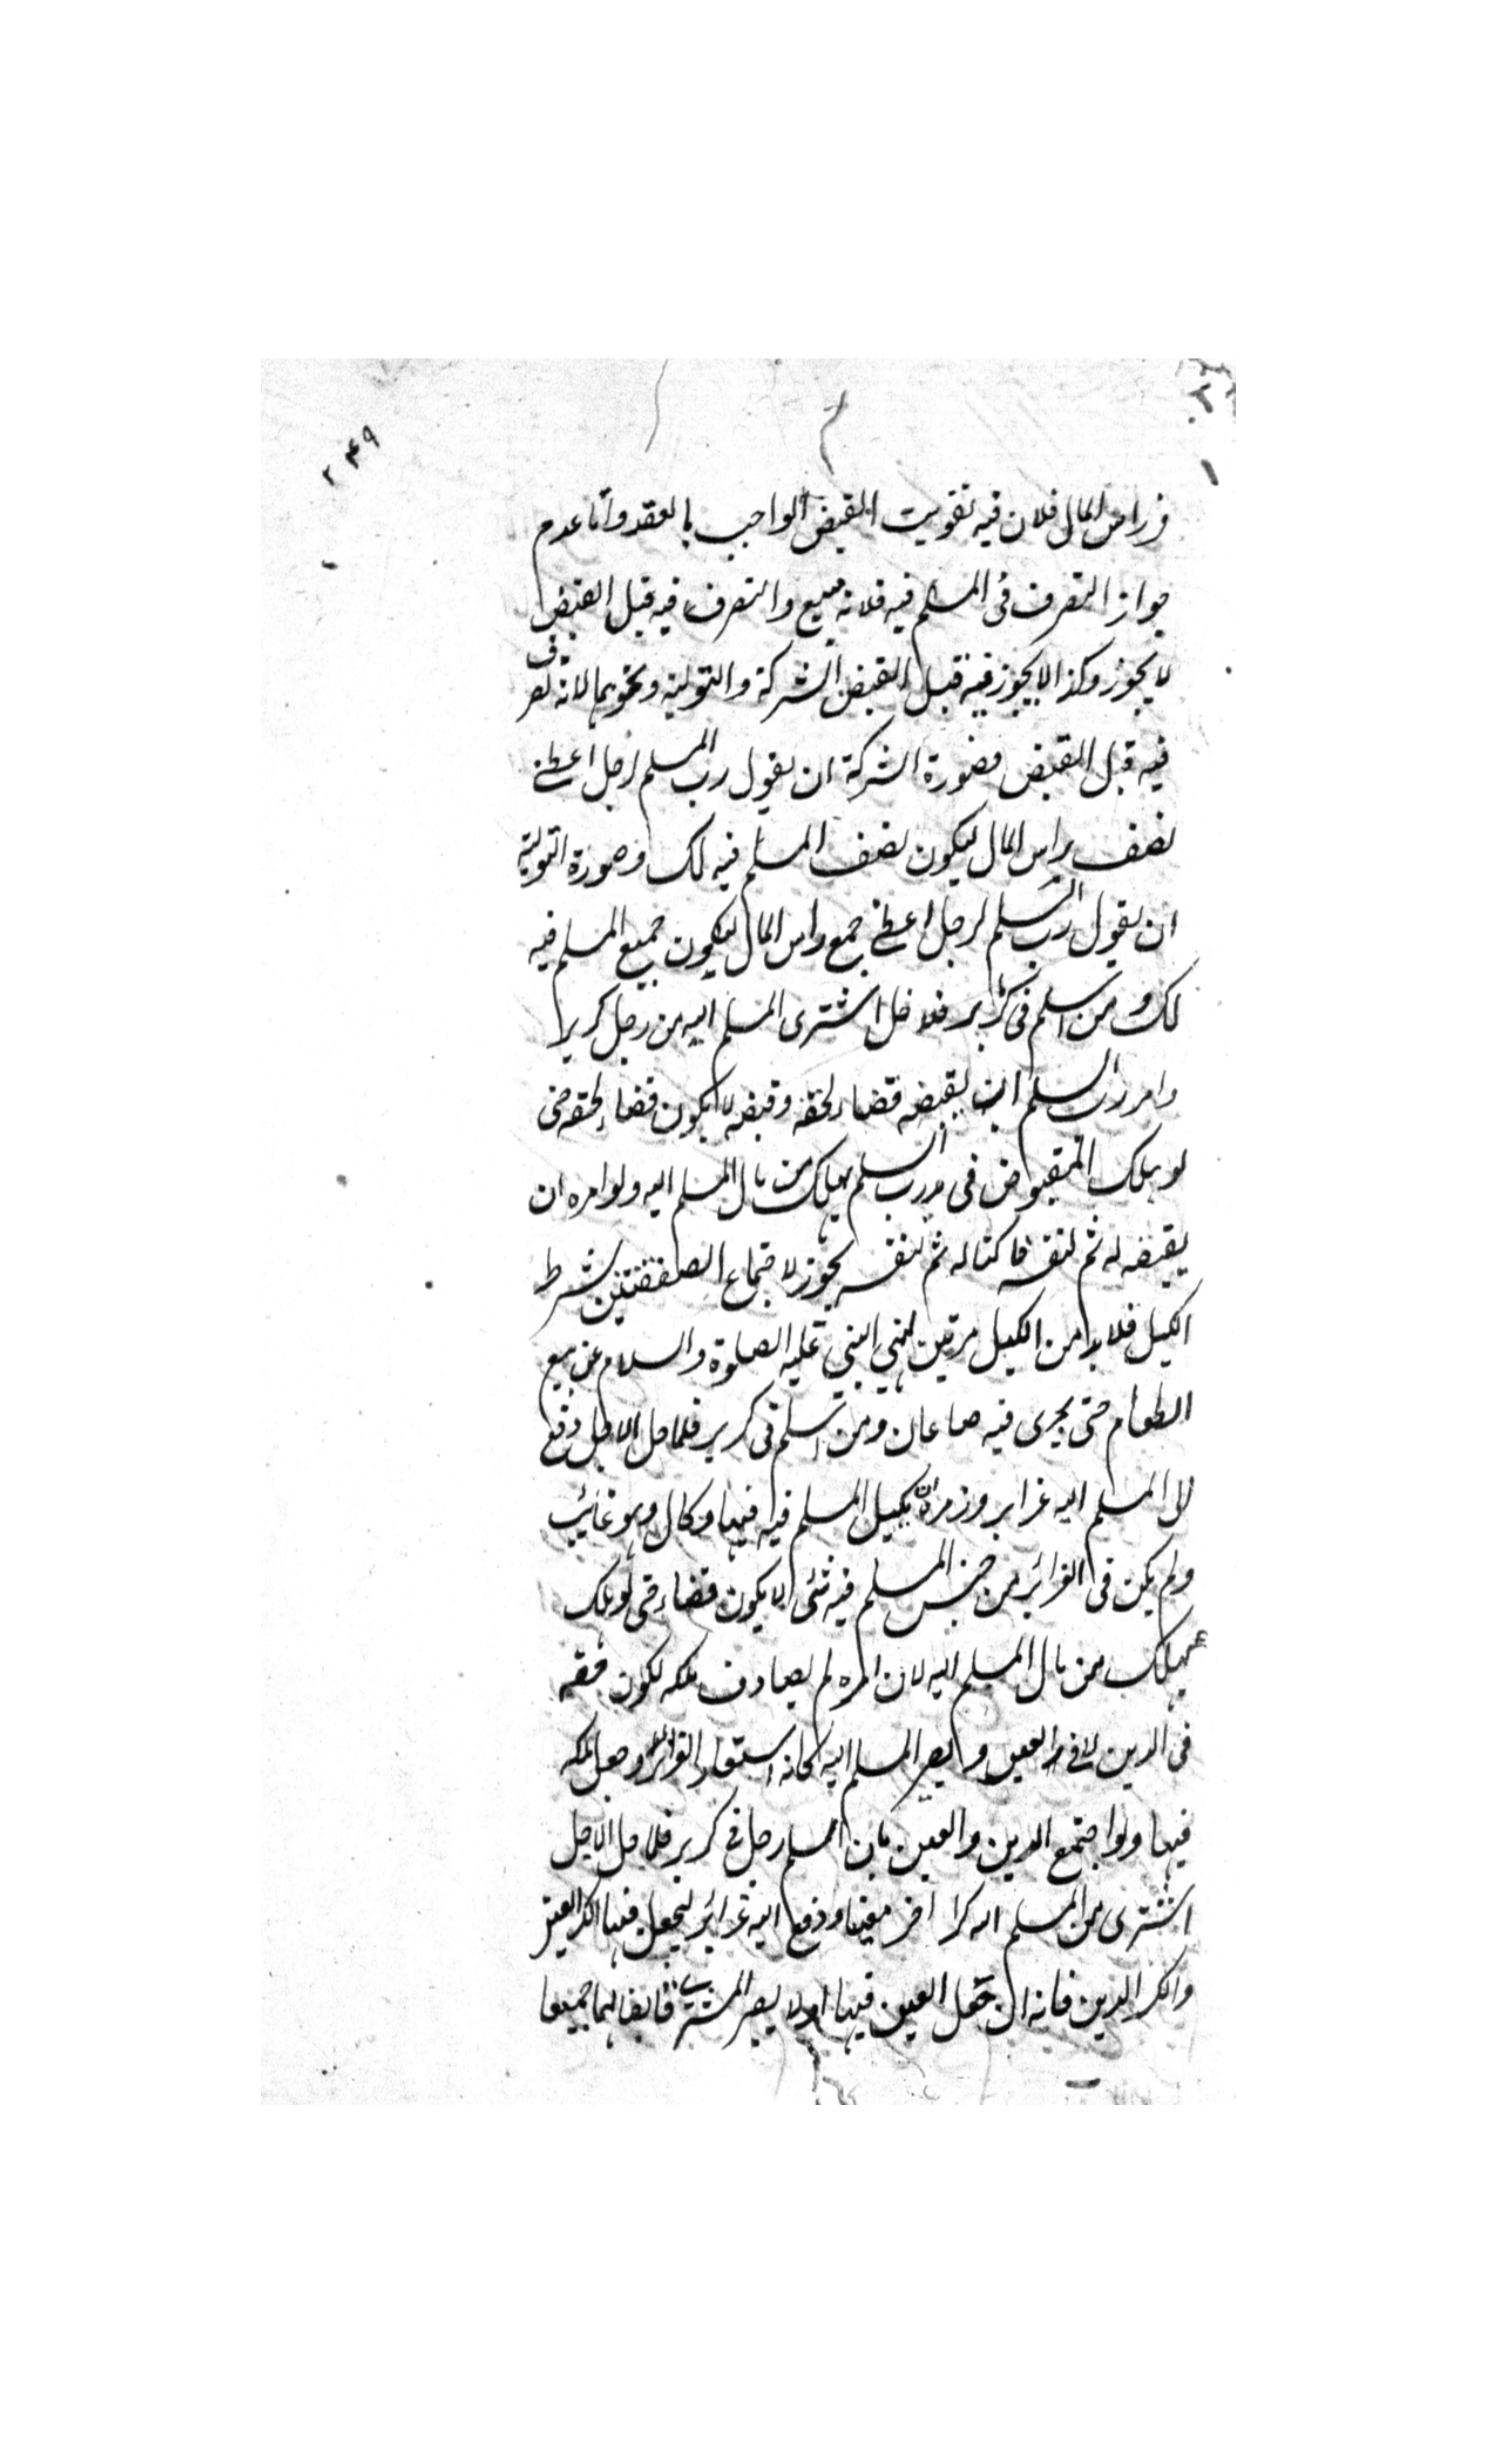 ٢٤٩
فى راس المال فلان فيه تفويت القبض الواجب بالعقد واما عدم
جواز التصرف فى المسلم فيه فلانه مبيع والتصرف فيه قبل القبض
لا يجوز وكذا لا يجوز فيه قبل القبض الشركة والتولية ونحوهما لانه تصرف
فيه قبل القبض وصورة الشركة ان يقول رب السلم لرجل اعطنى
نصف راس المال ليكون نصف المسلم فيه لك وصورة التولية
ان يقول رب السلم لرجل اعطنى جميع راس المال ليكون جميع المسلم فيه
لك ومن اسلم فى كر بر فلما حل اشترى المسلم اليه من رجل كر برا
وامر رب السلم ان يقبضه قضاء لحقه وقبضه لا يكون قضاء لحقه حتى
لو هلك المقبوض فى يد رب السلم يهلك من مال المسلم اليه ولو امره ان
يقبضه له ثم لنفسه فاكتاله ثم لنفسه يجوز لاجتماع الصفقتين بشرط
الكيل فلا بد من الكيل مرتين لنهى النبى عليه الصلوة والسلام عن بيع
الطعام حتى يجرى فيه صاعان ومن اسلم فى كر بر فلما حل الاجل دفع
الى المسلم اليه غراير وامره ان يكيل المسلم فيه فيها وكال وهو غائب
ولم يكن فى الغرائر من جنس المسلم فيه شئ لا يكون قضاء حتى لو هلك
يهلك من مال المسلم اليه لان امره لم يصادف ملكه لكون حقه
فى الدين لا فى العين ويصير المسلم اليه كانه استعار الغرائر وجعل ملكه
فيها ولو اجتمع الدين والعين بان اسلم رجل فى كر بر فلما حل الاجل
اشترى من المسلم اليه كرا اخر معينا ودفع اليه غرائر ليجعل فيها الكر العين
والكر الدين فانه ان جعل العين فيها اولا يصير المشترى قابضا لهما جميعا